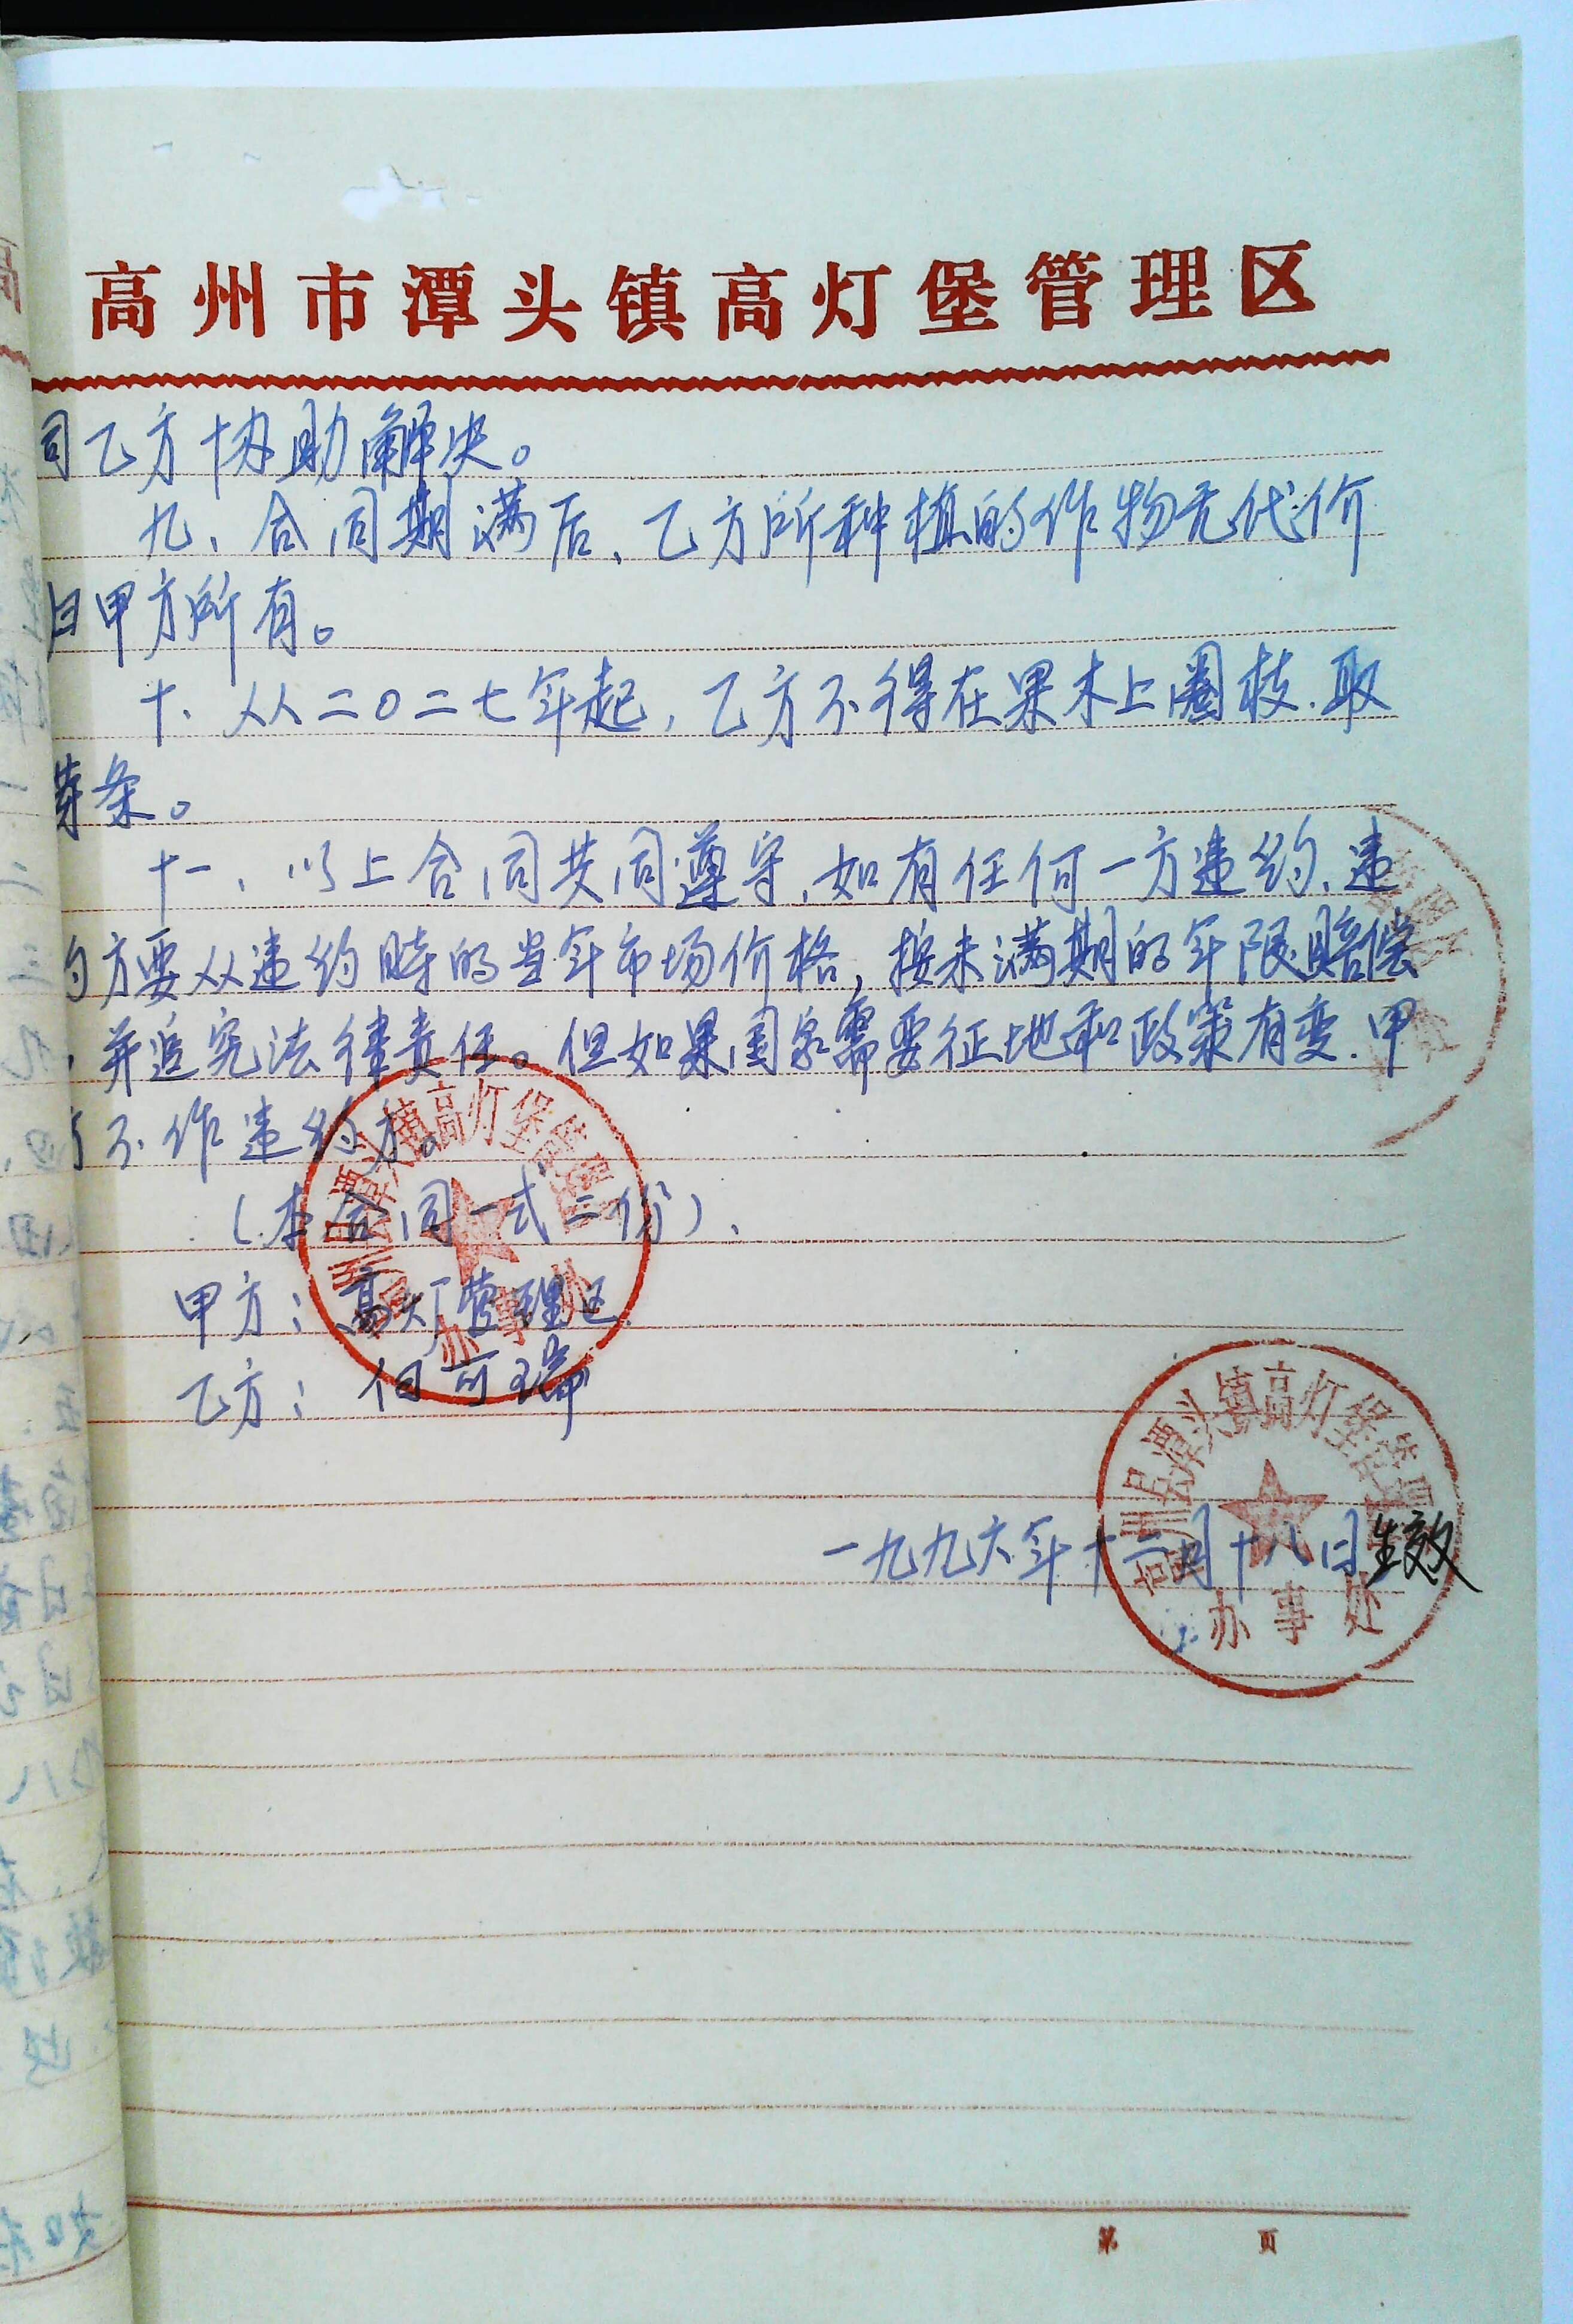 高州市潭头镇高灯堡管理区
同乙方协助解决。
九、合同期满后、乙方所种植的作物无代价
归甲方所有。
十、从二〇二七年起，乙方不得在果木上圈枝、取
芽条。
十一、以上合同共同遵守，如有任何一方违约、违
约方要从违约时的当年市场价格，按未满期的年限赔偿
，并追究法律责任。但如果国家需要征地和政策有变、甲
方不作违约方。
（本合同一式二份）、
甲方：高灯管理区
乙方：何可瑞
高州县潭头镇高灯堡管理区
办事处
一九九六年十二月十八日生效
第 页